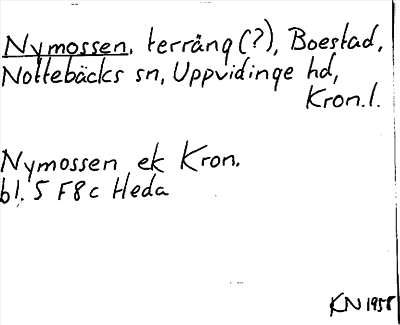 Nymossen, terräng (?), Boestad,
Nottebäcks sn, Uppvidinge hd,
Kron.l.
Nymossen ek Kron.
bl. 5 F8c Heda
KN 1958